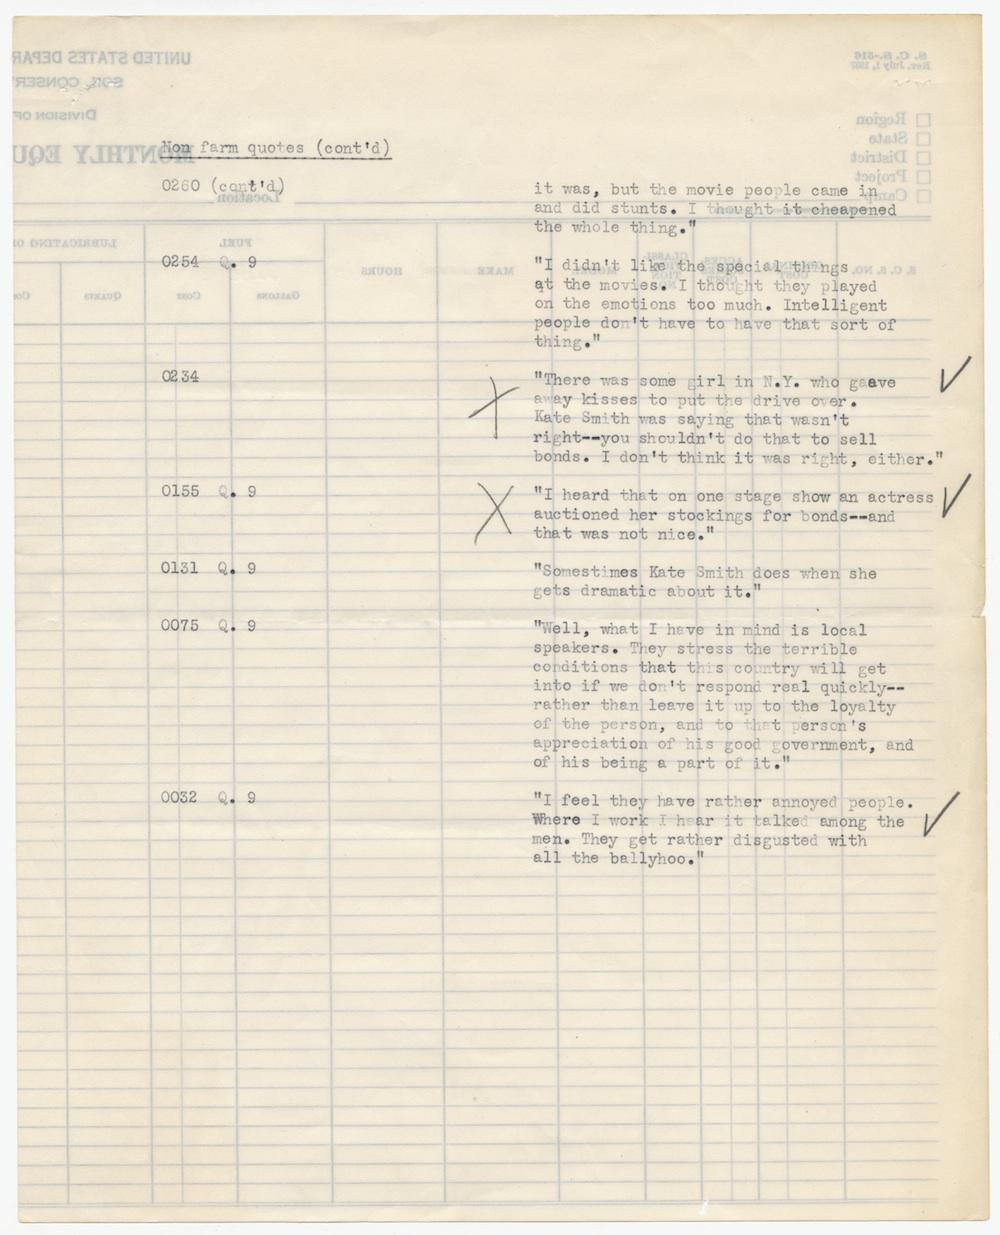 Non farm quotes (cont'd)
0260 (cont'd)
it was, but the movie people came in
and did stunts. I thought it cheapened
the whole thing."
0254 Q. 9
"I didn't like the special things
at the movies. I thought they played
on the emotions too much. Intelligent
people don't have to have that sort of
thing."
0234
"There was some girl in N.Y. who gaave
away kisses to put the drive over.
Kate Smith was saying that wasn't
right--you shouldn't do that to sell
bonds. I don't think it was right, either."
0155 Q. 9
"I heard that on one stage show an actress
auctioned her stockings for bonds--and
that was not nice."
0131 Q. 9
"Somestimes Kate Smith does when she
gets dramatic about it."
0075 Q. 9
"Well, what I have in mind is local
speakers. They stress the terrible
conditions that this country will get
into if we don't respond real quickly--
rather than leave it up to the loyalty
of the person, and to that person's
appreciation of his good government, and
of his being a part of it."
0032 Q. 9
"I feel they have rather annoyed people.
Where I work I hear it talked among the
men. They get rather disgusted with
all the ballyhoo."
UNITED STATES DEPAR
SOIL CONSER
DIVISION OF
MONTHLY EQU
Location
S. C. S.-516
Rev. July 1, 1937
Region
State
District
Project
Camp
LUBRICATING
FUEL
QUARTS
COST
GALLONS
HOURS
MAKE
S. C. S. NO.